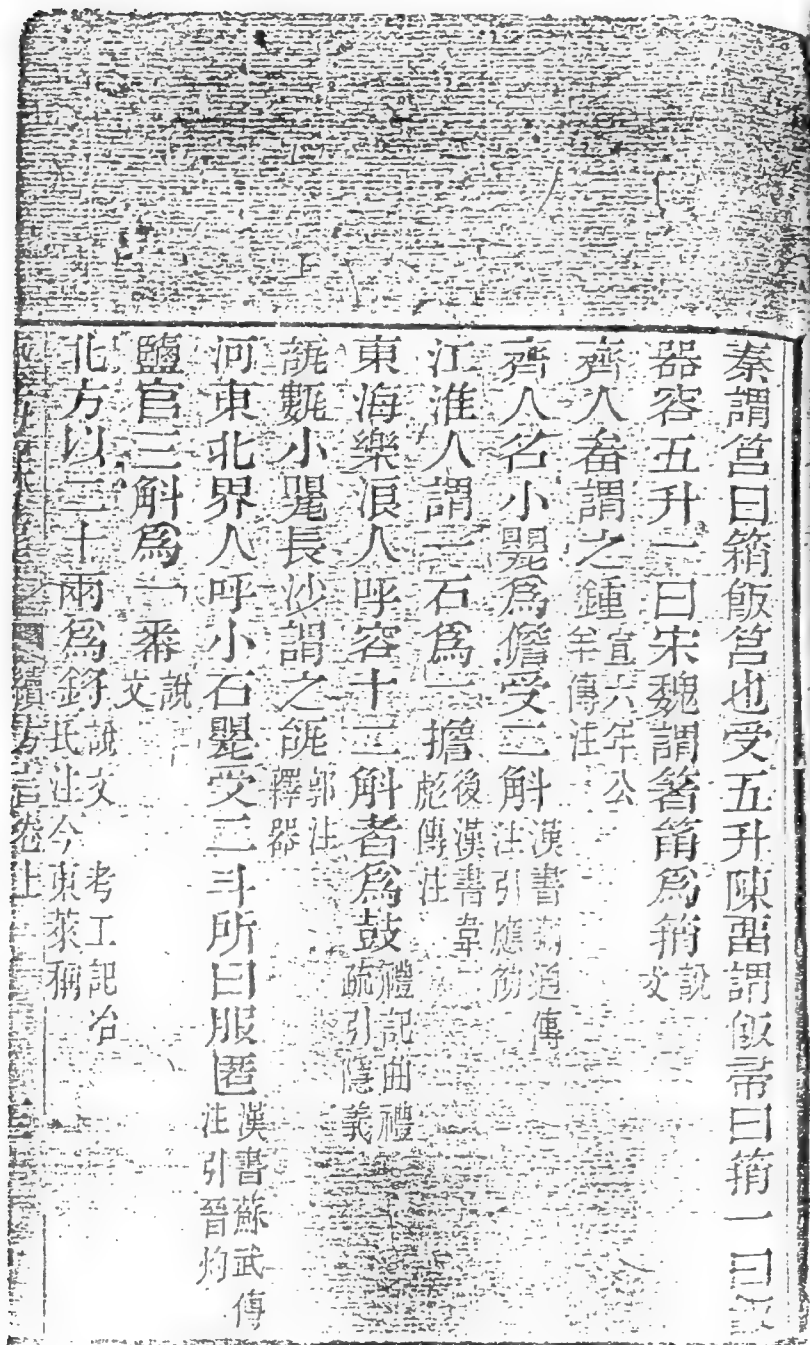 秦謂筥曰䈰飯筥也受五升陳畱謂飯帚曰䈰一曰飯
器容五升一曰宋魏謂箸筩爲䈰說文
齊人畚謂之鍾宣六年公羊傳注
齊人名小甖爲儋受二斛漢書蒯通傳注引應劭
江淮人謂一石爲一擔後漢書韋彪傳注
東海樂浪人呼容十二斛者爲鼓禮記曲禮疏引隱義
瓵甊小甖長沙謂之瓵郭注釋器
河東北界人呼小石甖受二斗所曰服匿漢書蘇武傳注引晉灼
鹽官三斛爲一帣說文
北方以二十兩爲鋝說文 考工記冶氏注今東萊稱
續方言卷上